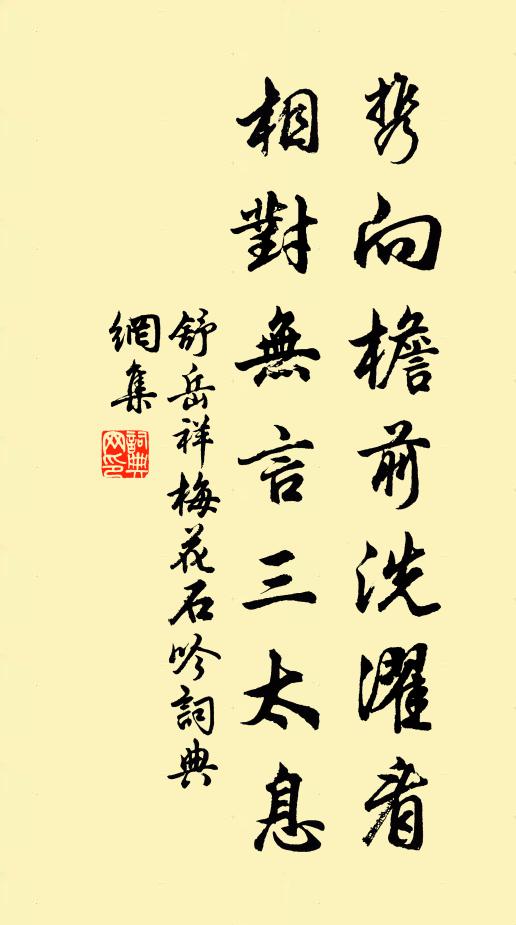 携向檐前洗濯看
相對無言三太息
舒岳祥梅花石吟詞典
網集
詞典
网印